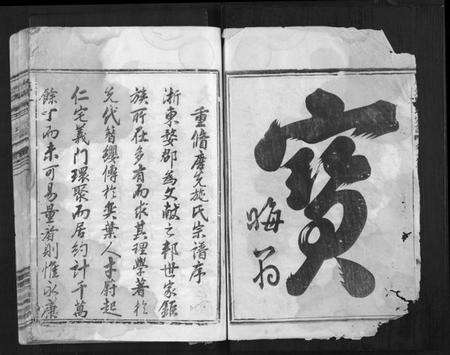 寶
晦翁
重修庠先施氏宗譜序
浙東婺郡為文獻之邦世家鉅
族所在多有而求其理學著於
先代簪纓傳於奕葉人才蔚起
仁宅義門環聚而居約計千萬
餘丁而未可易量者則惟永康